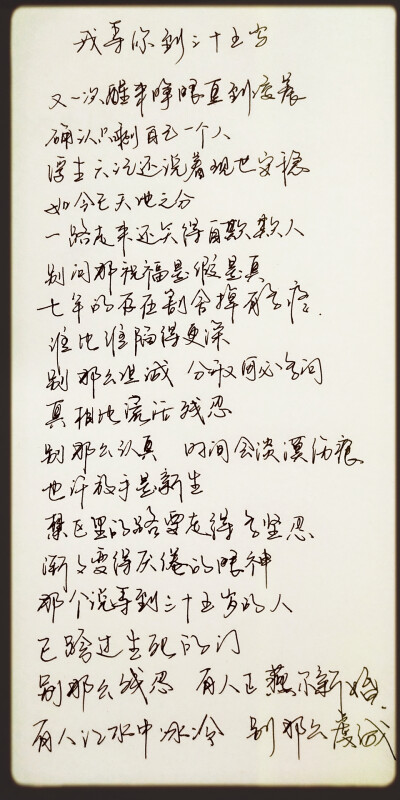 我等你到三十五岁
又一次醒来睁眼直到凌晨
确认只剩自己一个人
浮生六记还说着现世安稳
如今已天地之分
一路走来还笑得自欺欺人
别问那祝福是假是真
七年的存在割舍掉有多疼.
谁比谁陷得更深
别那么坦诚 分开何必多问
真相比谎话残忍
别那么认真 时间会淡漠伤痕
也许放手是新生
禁区里的路要走得多坚忍
渐々变得厌倦的眼神
那个说等到三十五岁的人
已跨过生死的门
别那么残忍 有人正燕尔新婚.
有人江水中冰冷 别那么虔诚